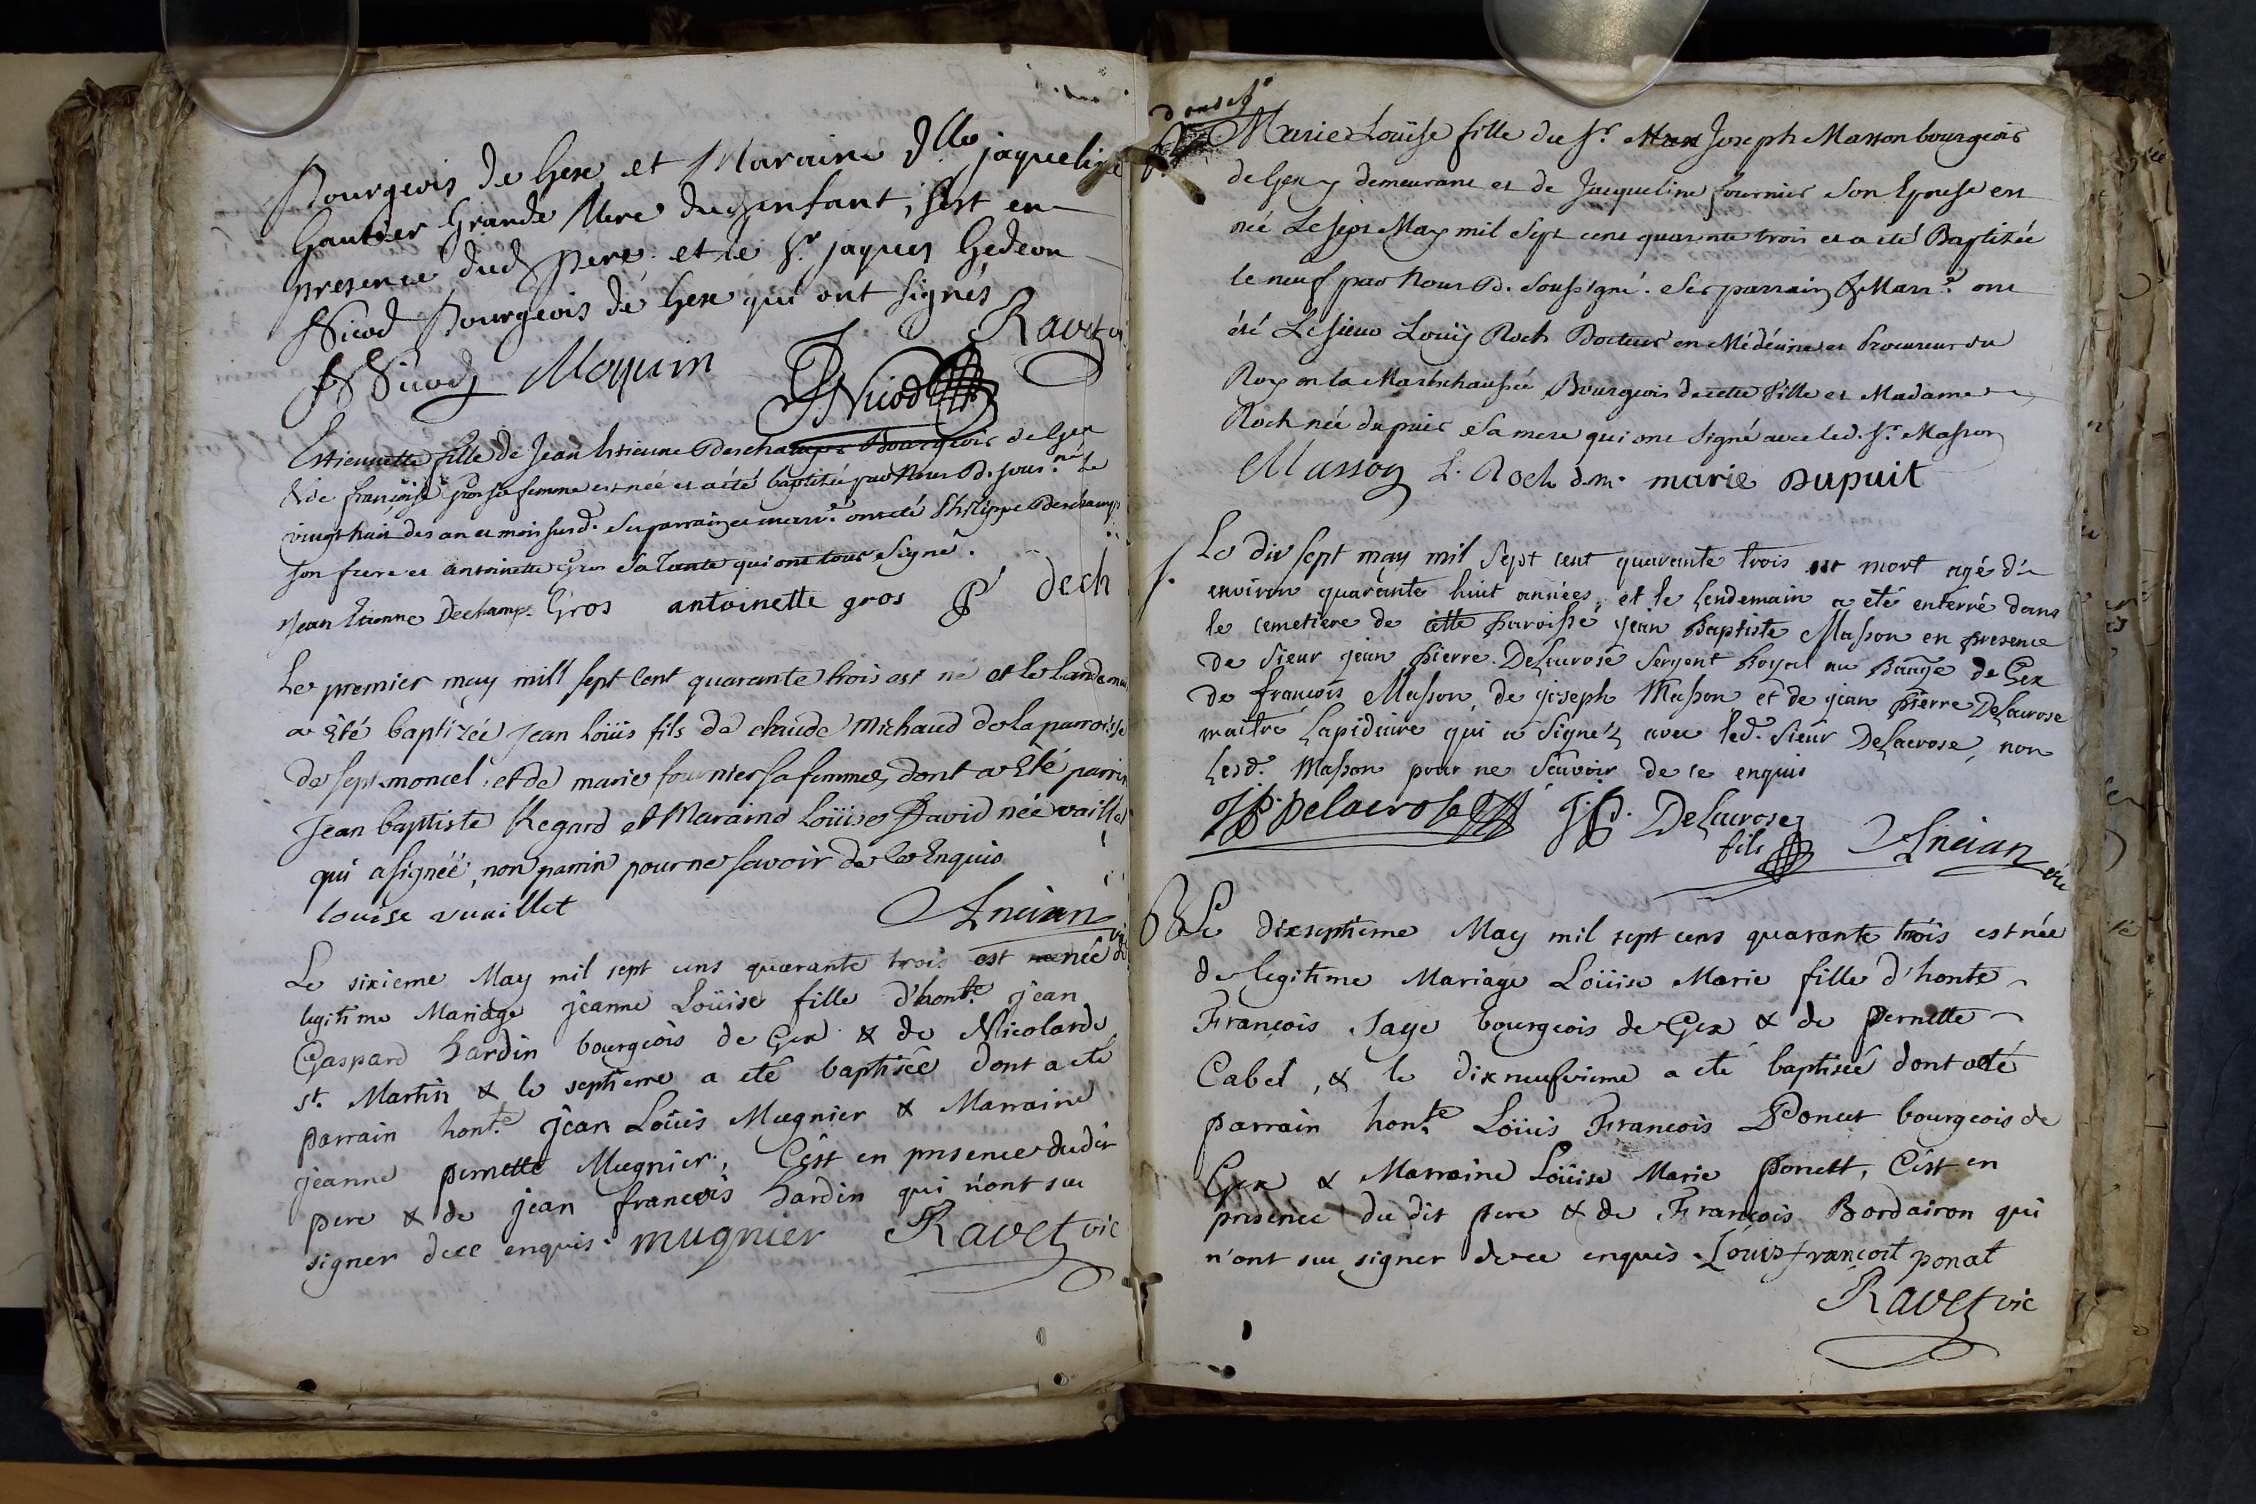 Bourgeois de Gex et Maraine dlle jaqueline
Gautier Grande Mere dud enfant, s'est en
presence dud pere et le Sr. jaques Gedeon
Nicod Bourgeois de Gex qui ont signés
Ravet vi
Nicod Moquin JNicod
Estiennette fille de Jean Estienne Deschamps Bourgeois de Gex
& de françoise Gros sa femme est née et a été baptisée par Nous Pb. sous.né le
vingt huit des an et mois susd. Ses parrain et marr.e ont été Philippe Deschamps
son frere et Antoinette Gros sa Tante qui ont tous signé.
Jean Etienne Dechamps Gros antoinette gros P dech
Le premier may mill sept Cent quarante trois est né et le landemai
a Eté baptizée Jean loüis fils de claude Michaud de la parroisse
de septmoncel et de marie fournier sa femme, dont a Eté parrin
Jean baptiste Regard et Maraine Loüise David née vaillet
qui a signéé, non parrin pour ne savoir de ce Enquis
louise vuaillet Ancian vic
Le sixieme May mil sept cens quarante trois est née de
legitime Mariage jeanne Loüise fille d'hont.e jean
Gaspard hardin bourgeois de Gex & de Nicolarde
st. Martin & le septieme a eté baptisée dont a eté
parrain hont.e jean Loüis Mugnier & Marraine
jeanne pernette Mugnier, C'est en presence dudit
pere & de jean francois hardin qui n'ont sue
signer dece enquis. mugnier Ravet vic
Marie Loüise fille du Sr. Joseph Masson bourgeois
de Gex y demeurant et de Jacqueline fournier son Epouse est
née Le sept May mil sept cent quarante trois et a été Baptisée
le neuf par Nous Pb. soussigné. Ses parrain & Marr.e ont
été Le sieur Louïs Roch Docteur en Médécine et Procureur du
Roy en la Maréchaussée, Bourgeois de cette Ville et Madame
Roch née dupuis sa mere qui ont signé avec led. Sr. Masson
Masson L. Roch d.m. marie Dupuit
S. Le dix sept may mil sept cent quarante trois est mort agé d'e
environ quarante huit années, et le Lendemain a été enterré dans
le cemetiere de cette paroisse jean Baptiste Masson en presence
de Sieur jean pierre Delacrose sergent Royal au Bailliage de Gex
de françois Masson, de joseph Masson et de jean pierre Delacrose
maitre Lapidaire qui a signéz avec led. Sieur Delacrose, non
lesd. Masson pour ne scavoir de ce enquis
JP. Delacrose J.P. Delacrose
fils Ancian vic
B Le dixseptieme May mil sept cens quarante trois est née
de legitime Mariage Loüise Marie fille d'honte
François Saye bourgeois de Gex & de pernette
Cabet, & le dixneufvieme a eté baptisée dont a été
parrain hon.te Loüis Francois Ponut bourgeois de
Gex & Marraine Loüise Marie ponett, C'est en
presence du dit pere & de François Bordairon qui
n'ont sue signer de ce enquis. Louis françoit ponat
Ravet vic